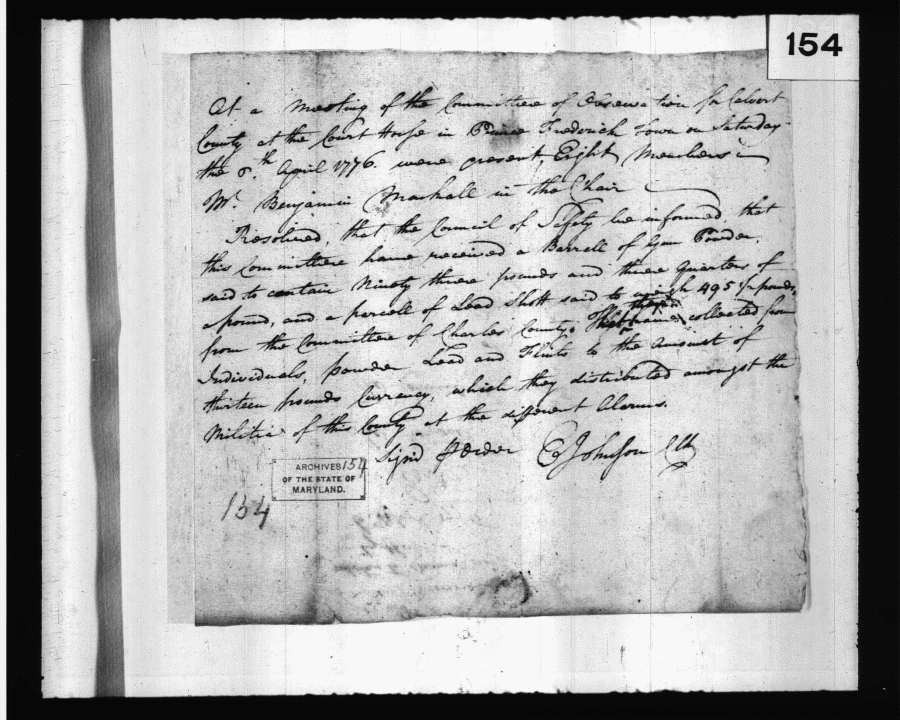 154
At a Meeting of the Committee of Observation for Calvert
County at the Court House in Prince Frederick Town on Saturday
the 6.th April 1776. were present, Eight Members
Mr. Benjamin Mackall in the Chair
Resolved, that the Council of Safety be informed, that
this Committee have received a Barrell of Gun Powder,
said to contain Ninety three pounds and three Quarters of
a pound, and a parcell of Lead Shott said to weigh 495 pounds,
from the Committee of Charles County. they have collected from
Individuals, powder Lead and Flints to the amount of
thirteen pounds Currency, which they distributed amongst the
Militia of this County at the different Alarms.
Sign'd Order Johnson Clk
ARCHIVES 154
OF THE STATE OF
MARYLAND.
154